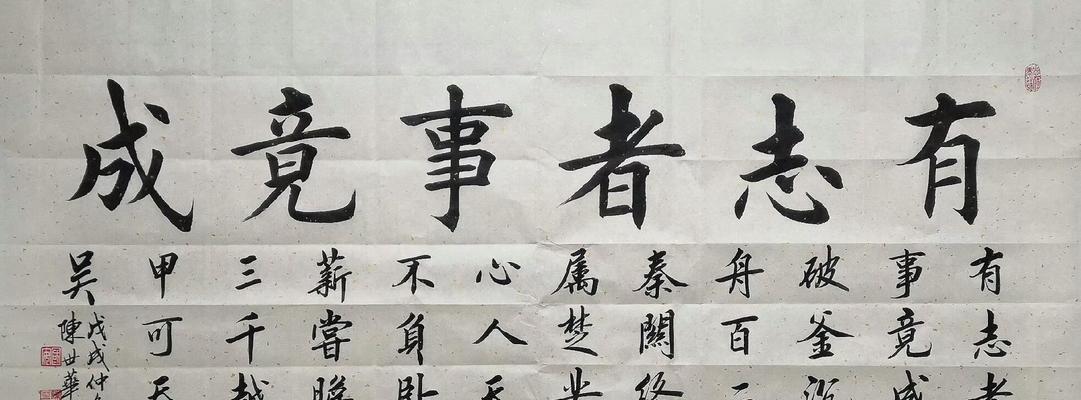 有志者事竟成
有志者
事竟成
破釜沉
舟百二
秦關终
属楚
心人天
不負卧
薪嘗膽
三千越
甲可吞
吴
戊戌仲
陳世華